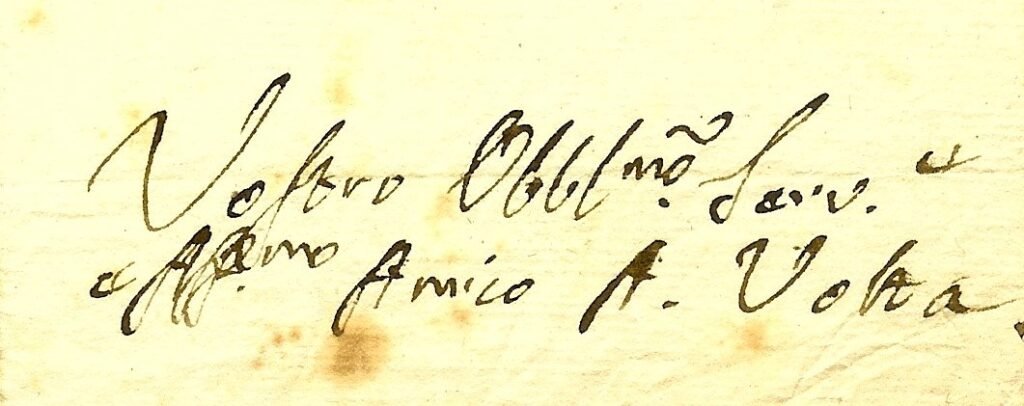 Vostro Obblmo. Serv. e
e Affmo. Amico A. Volta